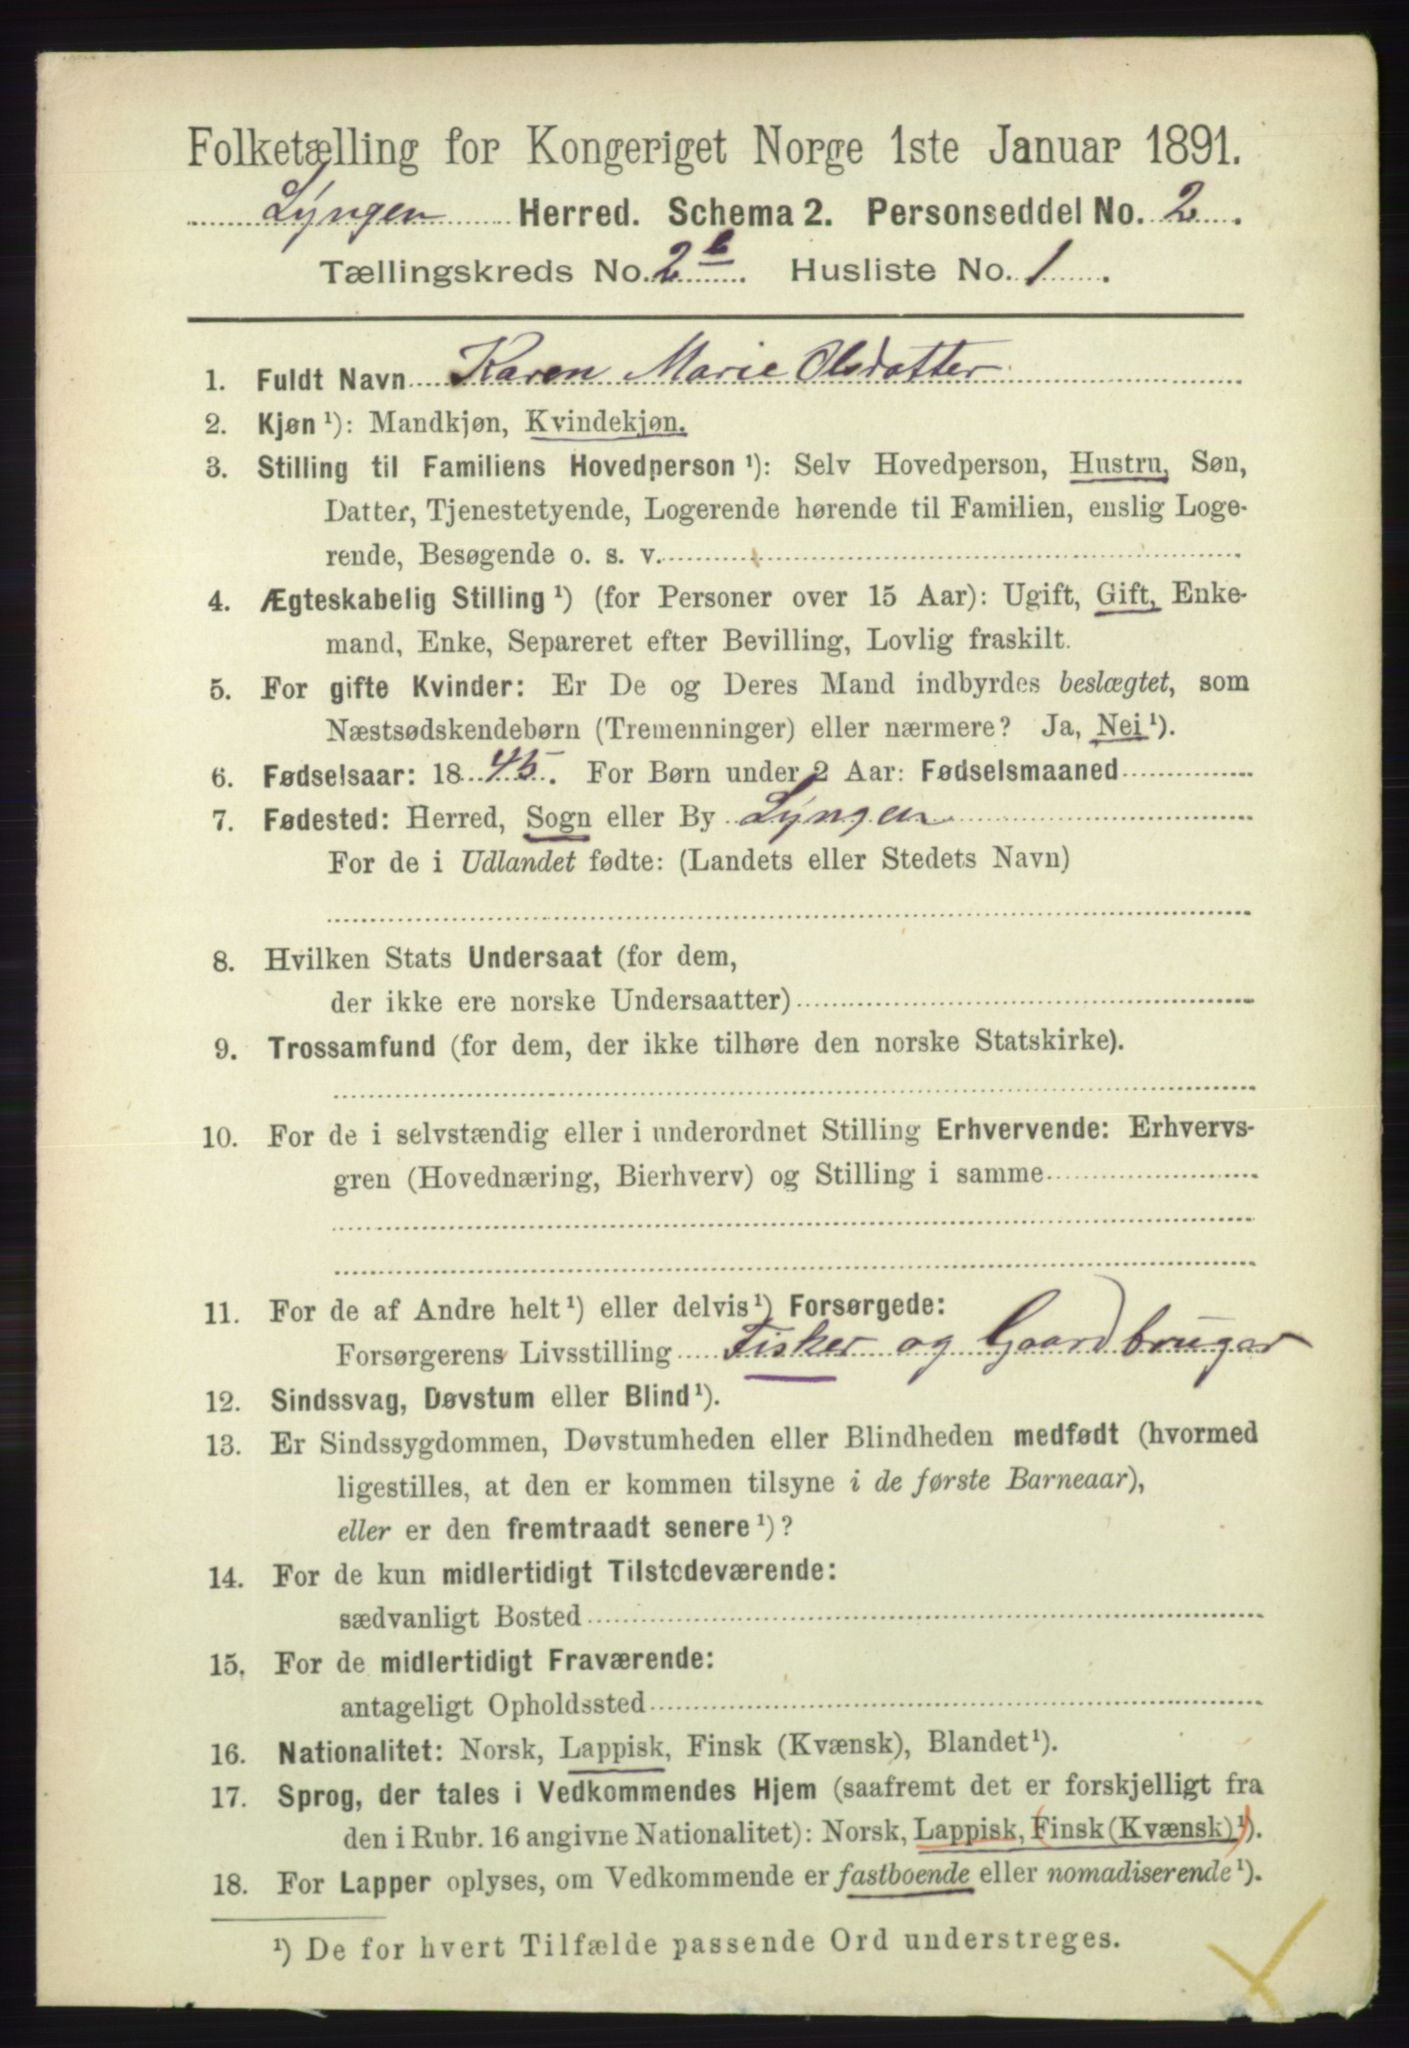 Folketælling for Kongeriget Norge 1ste Januar 1891.
Lyngen Herred. Schema 2. Personseddel No. 2.
Tællingskreds No. 2 b. Husliste No. 1.
1. Fuldt Navn Karen Marie Olsdatter
2. Kjøn ¹): Mandkjøn, Kvindekjøn.
3. Stilling til Familiens Hovedperson ¹): Selv Hovedperson, Hustru, Søn,
Datter, Tjenestetyende, Logerende hørende til Familien, enslig Loge-
rende, Besøgende o. s. v.
4. Ægteskabelig Stilling ¹) (for Personer over 15 Aar): Ugift, Gift, Enke-
mand, Enke, Separeret efter Bevilling, Lovlig fraskilt.
5. For gifte Kvinder: Er De og Deres Mand indbyrdes beslægtet, som
Næstsødskendebørn (Tremenninger) eller nærmere? Ja, Nei ¹).
6. Fødselsaar: 1845. For Børn under 2 Aar: Fødselsmaaned
7. Fødested: Herred, Sogn eller By Lyngen
For de i Udlandet fødte: (Landets eller Stedets Navn)
8. Hvilken Stats Undersaat (for dem,
der ikke ere norske Undersaatter)
9. Trossamfund (for dem, der ikke tilhøre den norske Statskirke).
10. For de i selvstændig eller i underordnet Stilling Erhvervende: Erhvervs-
gren (Hovednæring, Bierhverv) og Stilling i samme
11. For de af Andre helt ¹) eller delvis ¹) Forsørgede:
Forsørgerens Livsstilling Fisker og Gaardbruger
12. Sindssvag, Døvstum eller Blind ¹).
13. Er Sindssygdommen, Døvstumheden eller Blindheden medfødt (hvormed
ligestilles, at den er kommen tilsyne i de første Barneaar),
eller er den fremtraadt senere ¹)?
14. For de kun midlertidigt Tilstedeværende:
sædvanligt Bosted
15. For de midlertidigt Fraværende:
antageligt Opholdssted
16. Nationalitet: Norsk, Lappisk, Finsk (Kvænsk), Blandet ¹).
17. Sprog, der tales i Vedkommendes Hjem (saafremt det er forskjelligt fra
den i Rubr. 16 angivne Nationalitet): Norsk, Lappisk, Finsk (Kvænsk) ¹).
18. For Lapper oplyses, om Vedkommende er fastboende eller nomadiserende ¹).
¹) De for hvert Tilfælde passende Ord understreges.